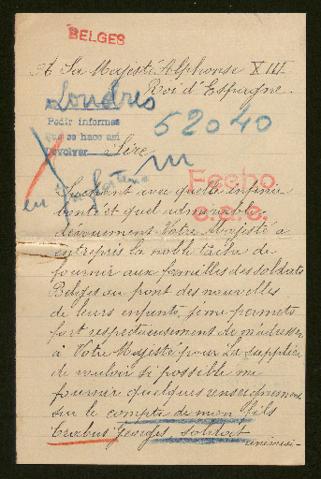 BELGES
A Sa Majesté Alphonse XIII
Roi d'Espagne.
Londres
Pedir informes
que se hace así
Devolver
52040
Sire,
Fecho
Sachant avec quelle infinie
bonté et quel admirable
dévouement Votre Majesté a
entrepris la noble tâche de
fournir aux familles des soldats
Belges au front des nouvelles
de leurs enfants, je me permets
fort respectueusement de m'adresser
à Votre Majesté pour La supplier
de vouloir si possible me
fournir quelques renseignements
sur le compte de mon fils
Crabus Georges, soldat